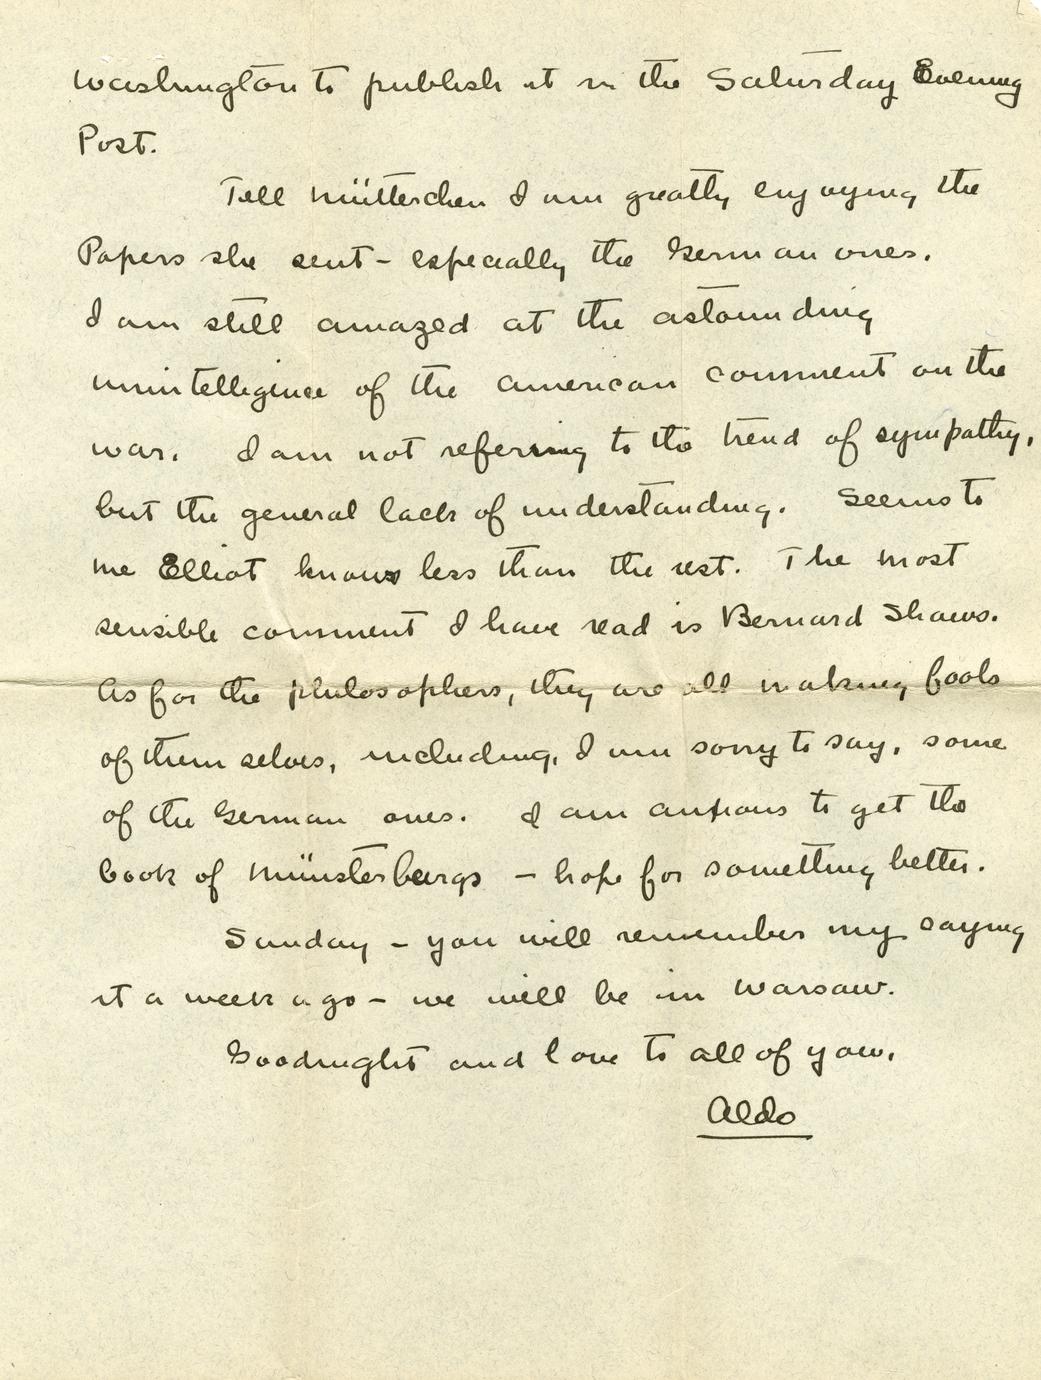 Washington to publish it in the Saturday Evening
Post.
Tell Mütterchen I am greatly enjoying the
Papers she sent - especially the German ones.
I am still amazed at the astounding
unintelligence of the American comment on the
war. I am not referring to the trend of sympathy,
but the general lack of understanding. Seems to
me Elliot knows less than the rest. The most
sensible comment I have read is Bernard Shaws.
As for the philosophers, they are all making fools
of themselves, including, I am sorry to say, some
of the German ones. I am anxious to get the
book of Münsterburgs - hope for something better.
Sunday - you will remember my saying
it a week ago - we will be in Warsaw.
Goodnight and love to all of you.
Aldo